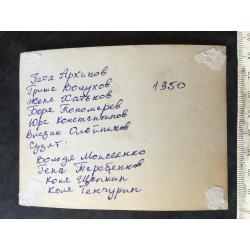 Петя Архипов
Гриша Болухов
Женя Хатьков
Боря Пономарев
Юра Константинов
Владик Олейников
Сидят:
Володя Моисеенко
Гена Теребенков
Коля Щепкин
Коля Тенгурин
1950